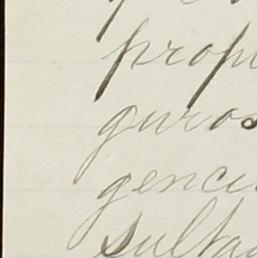 prop
guros
genci
sulta